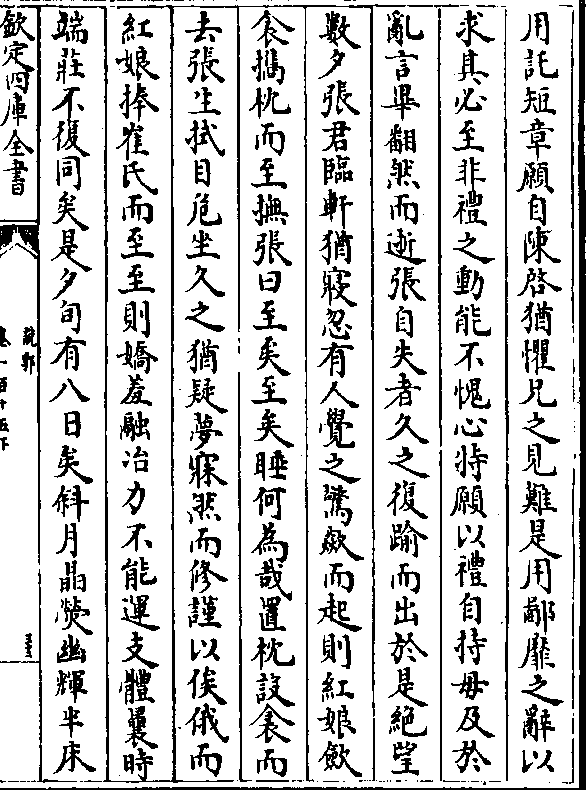 用託短章願自陳啓猶懼兄之見難是用鄙靡之辭以
求其必至非禮之動能不愧心特願以禮自持毋及於
亂言畢翻然而逝張自失者久之復踰而出於是絕望
數夕張君臨軒猶寢忽有人覺之驚歘而起則紅娘歛
衾攜枕而至撫張曰至矣至矣睡何為哉置枕設衾而
去張生拭目危坐久之猶疑夢寐然而修謹以俟俄而
紅娘捧崔氏而至至則嬌羞融冶力不能運支體曩時
端莊不復同矣是夕旬有八日矣斜月晶熒幽輝半床
欽定四庫全書
說郛
卷一百十五下